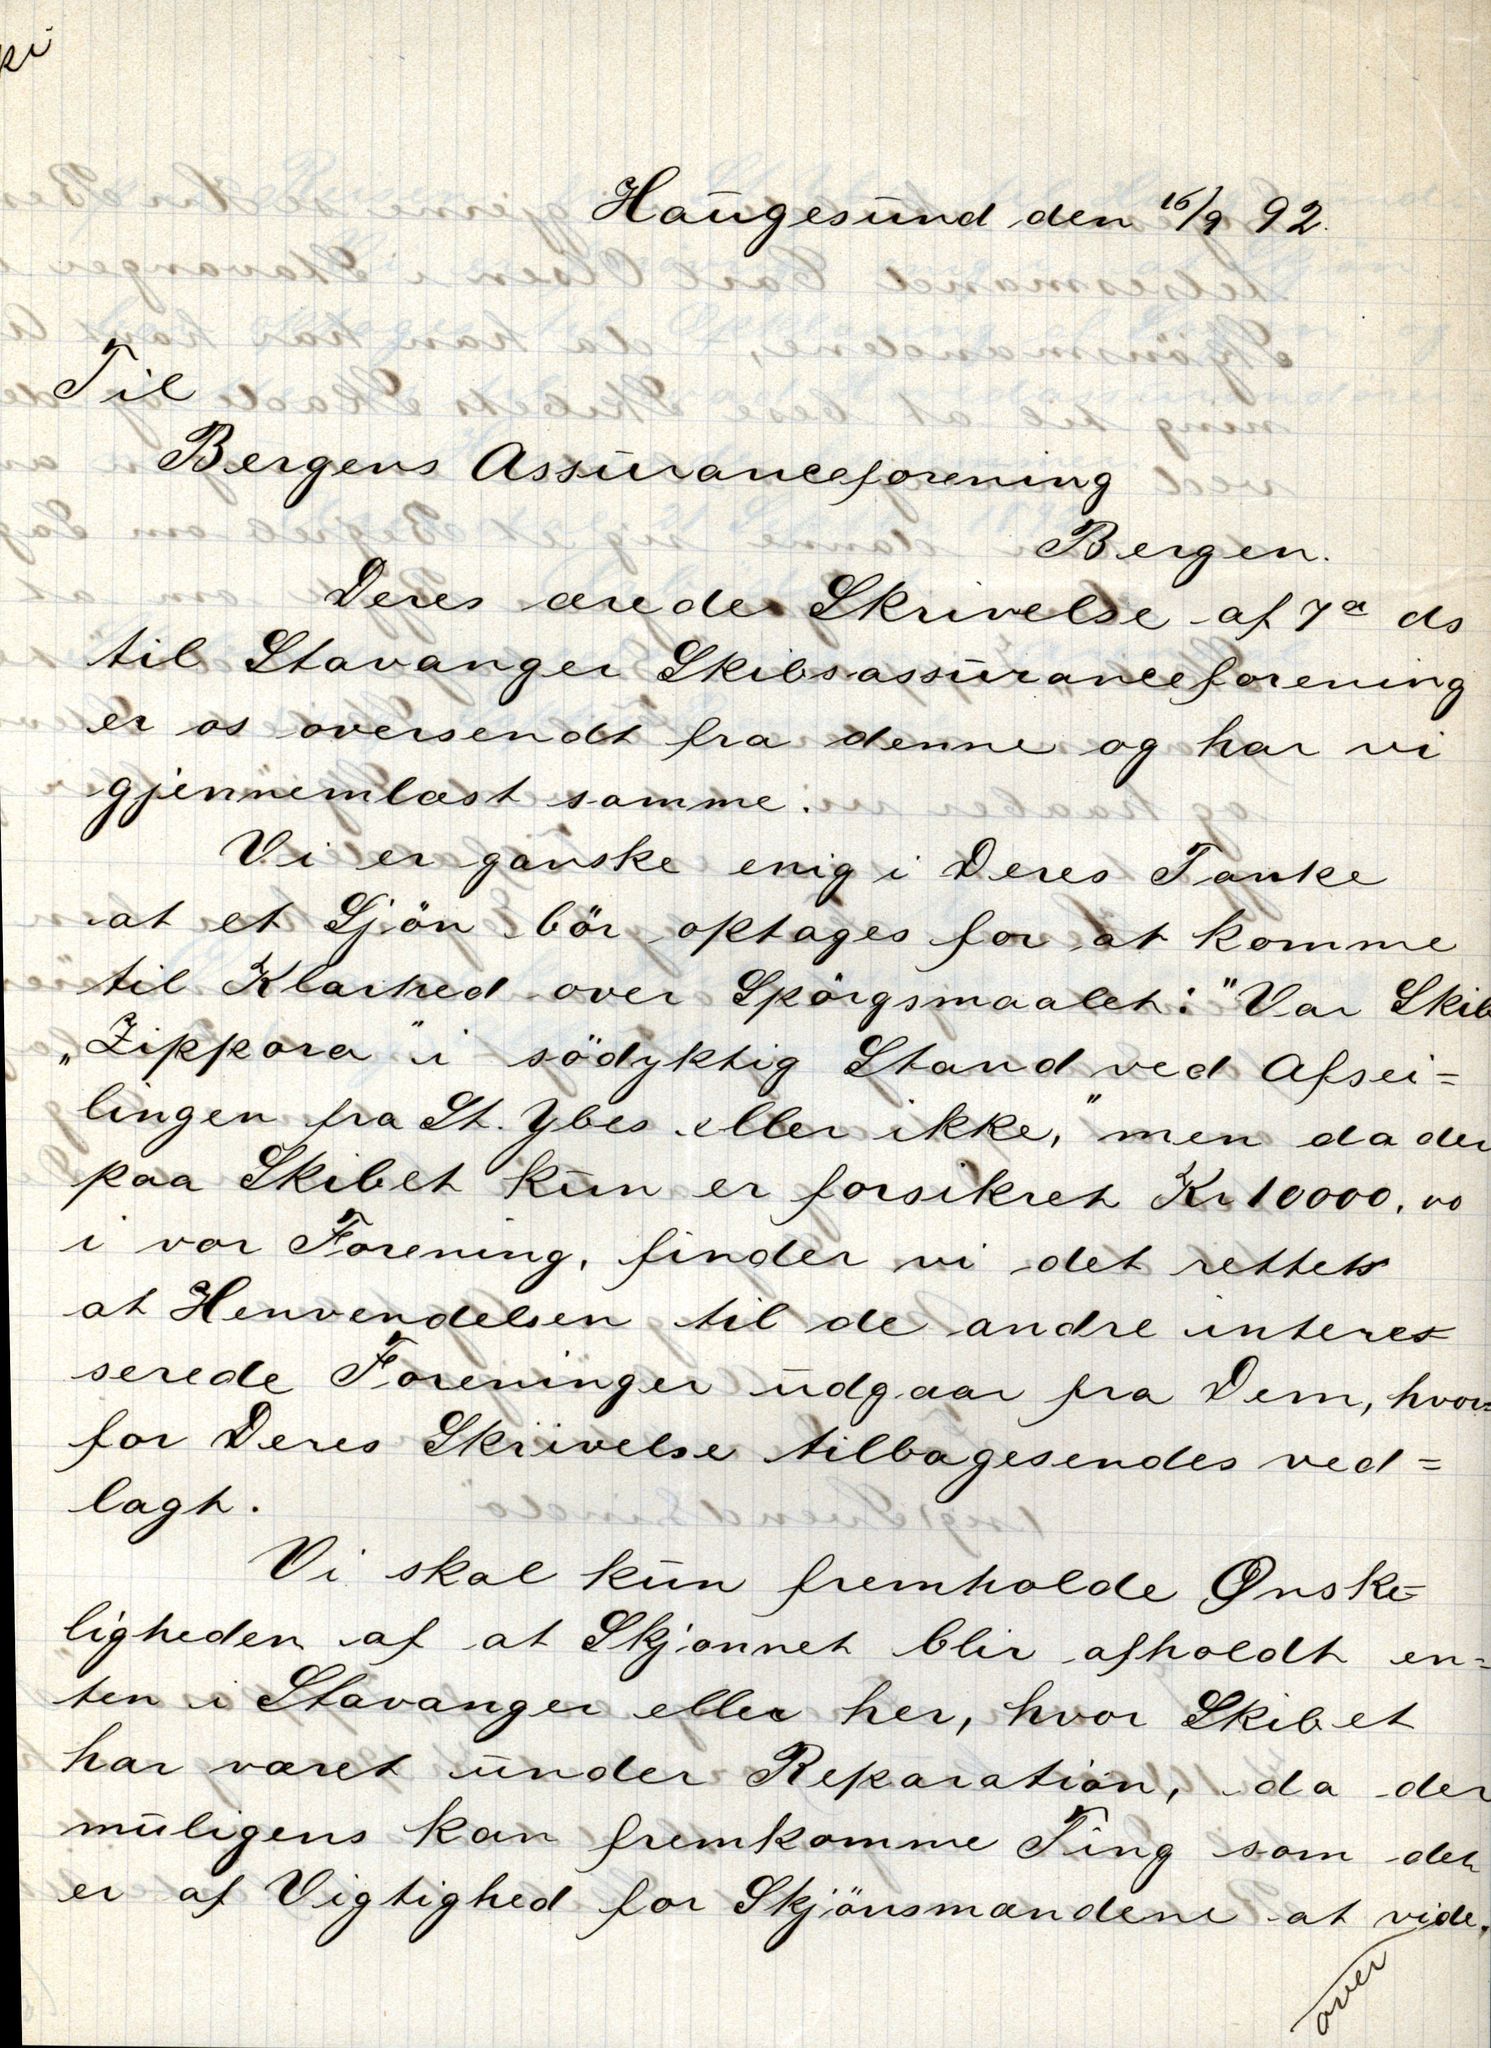 Haugesund den 16/9 92.
Til
Bergens Assuranceforening
Bergen.
Deres ærede Skrivelse af 7de ds
til Stavanger Skibsassuranceforening
er os oversendt fra denne og har vi
gjennemlæst samme.
Vi er ganske enig i Deres Tanke
at et Sjön bör optages for at komme
til Klarhed over Spörgsmaalet: "Var Skib
„Zippora" i södyktig Stand ved Afsei=
lingen fra St. Ybes eller ikke," men da der
paa Skibet kun er forsikret Kr 10000, 00
i vor Forening, finder vi det rettest
at Henvendelsen til de andre interes=
serede Foreninger udgaar fra Dem, hvor=
for Deres Skrivelse tilbagesendes ved=
lagt.
Vi skal kun fremholde Ønske=
ligheden af at Skjønnet blir afholdt en=
ten i Stavanger eller her, hvor Skibet
har været under Reparation, da der
muligens kan fremkomme Ting som det
er af Vigtighed for Skjönsmændene at vide.
over